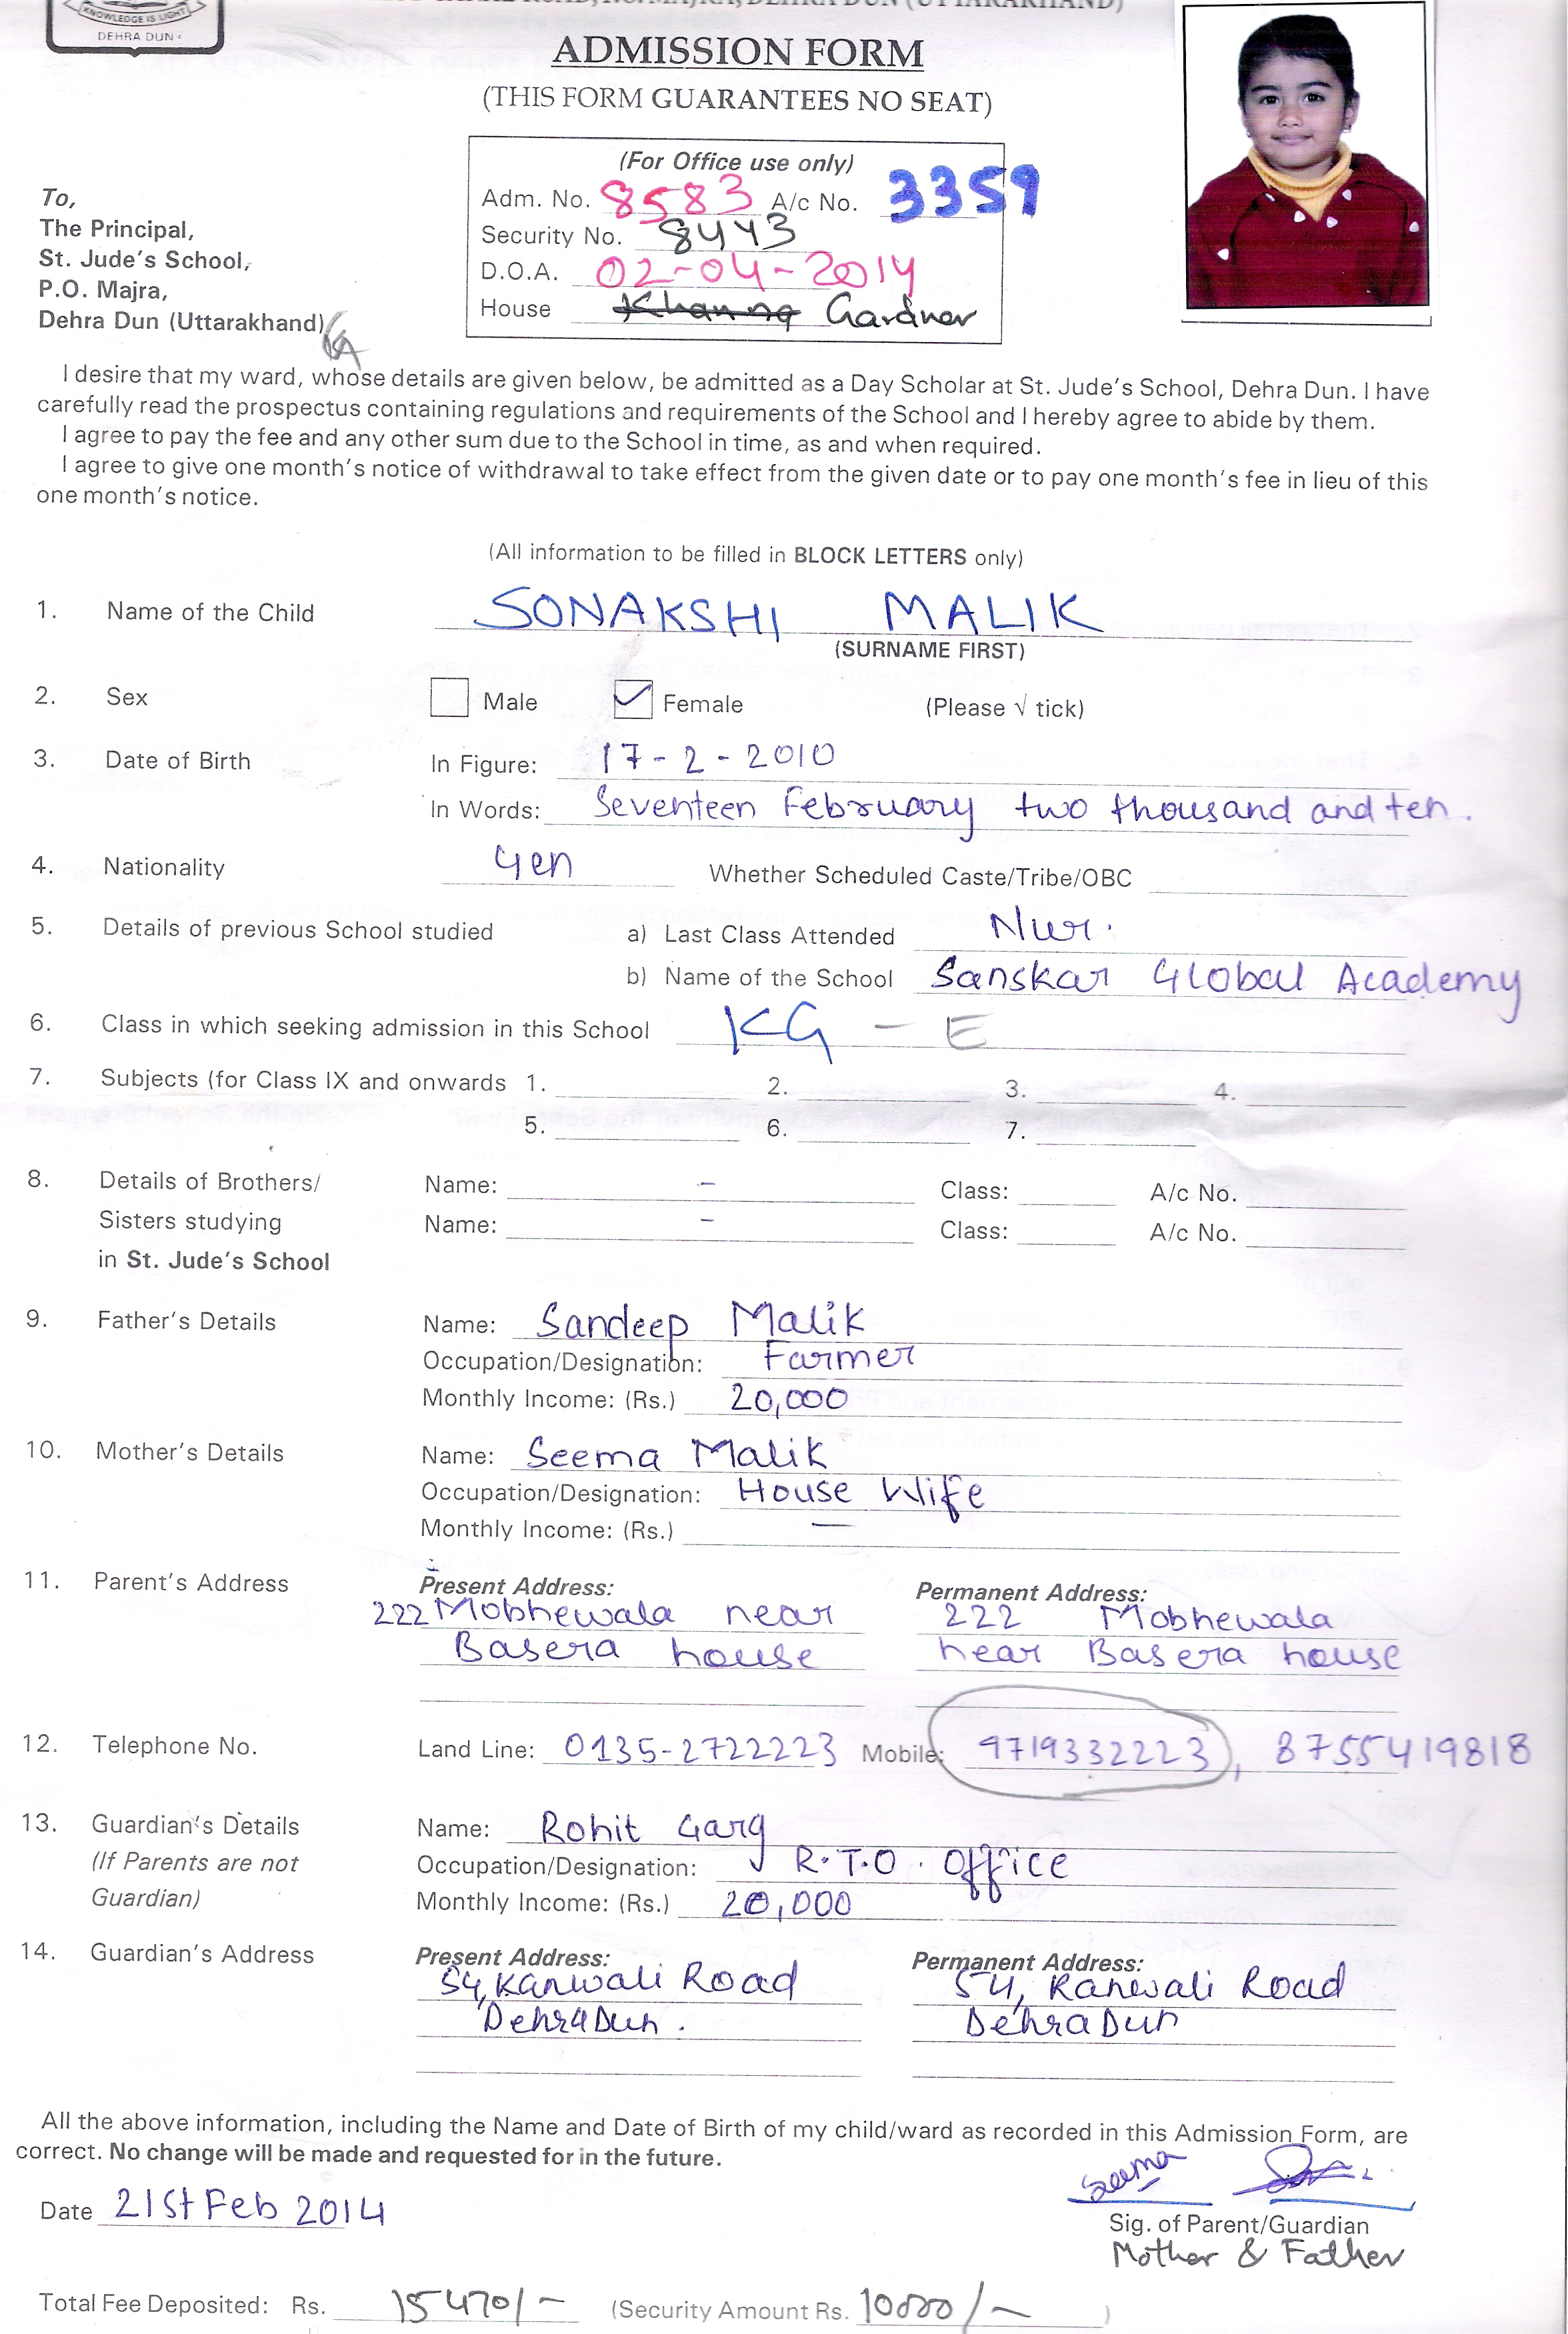 KNOWLEDGE IS LIGHT
DEHRA DUN
ADMISSION FORM
(THIS FORM GUARANTEES NO SEAT)
(For Office use only)
Adm. No. 8583 A/c No. 3359
Security No. 8443
D.O.A. 02-04-2014
House Gardner
To,
The Principal,
St. Jude's School,
P.O. Majra,
Dehra Dun (Uttarakhand)
I desire that my ward, whose details are given below, be admitted as a Day Scholar at St. Jude's School, Dehra Dun. I have
carefully read the prospectus containing regulations and requirements of the School and I hereby agree to abide by them.
I agree to pay the fee and any other sum due to the School in time, as and when required.
I agree to give one month's notice of withdrawal to take effect from the given date or to pay one month's fee in lieu of this
one month's notice.
(All information to be filled in BLOCK LETTERS only)
1. Name of the Child SONAKSHI MALIK
(SURNAME FIRST)
2. Sex Male Female (Please √ tick)
3. Date of Birth In Figure: 17-2-2010
In Words: Seventeen February two thousand and ten.
4. Nationality Gen Whether Scheduled Caste/Tribe/OBC
5. Details of previous School studied a) Last Class Attended Nur.
b) Name of the School Sanskar Global Academy
6. Class in which seeking admission in this School KG - E
7. Subjects (for Class IX and onwards 1. 2. 3. 4.
5. 6. 7.
8. Details of Brothers/ Name: - Class: A/c No.
Sisters studying Name: - Class: A/c No.
in St. Jude's School
9. Father's Details Name: Sandeep Malik
Occupation/Designation: Farmer
Monthly Income: (Rs.) 20,000
10. Mother's Details Name: Seema Malik
Occupation/Designation: House Wife
Monthly Income: (Rs.) —
11. Parent's Address Present Address: Permanent Address:
222 Mobhewala near 222 Mobhewala
Basera house near Basera house
12. Telephone No. Land Line: 0135-2722223 Mobile: 9719332223, 8755419818
13. Guardian's Details Name: Rohit Garg
(If Parents are not Occupation/Designation: R.T.O. Office
Guardian) Monthly Income: (Rs.) 20,000
14. Guardian's Address Present Address: Permanent Address:
54, Kanwali Road 54, Kanwali Road
DehraDun. DehraDun
All the above information, including the Name and Date of Birth of my child/ward as recorded in this Admission Form, are
correct. No change will be made and requested for in the future.
Seema
Date 21st Feb 2014
Sig. of Parent/Guardian
Mother & Father
Total Fee Deposited: Rs. 15470/- (Security Amount Rs. 10000/- )